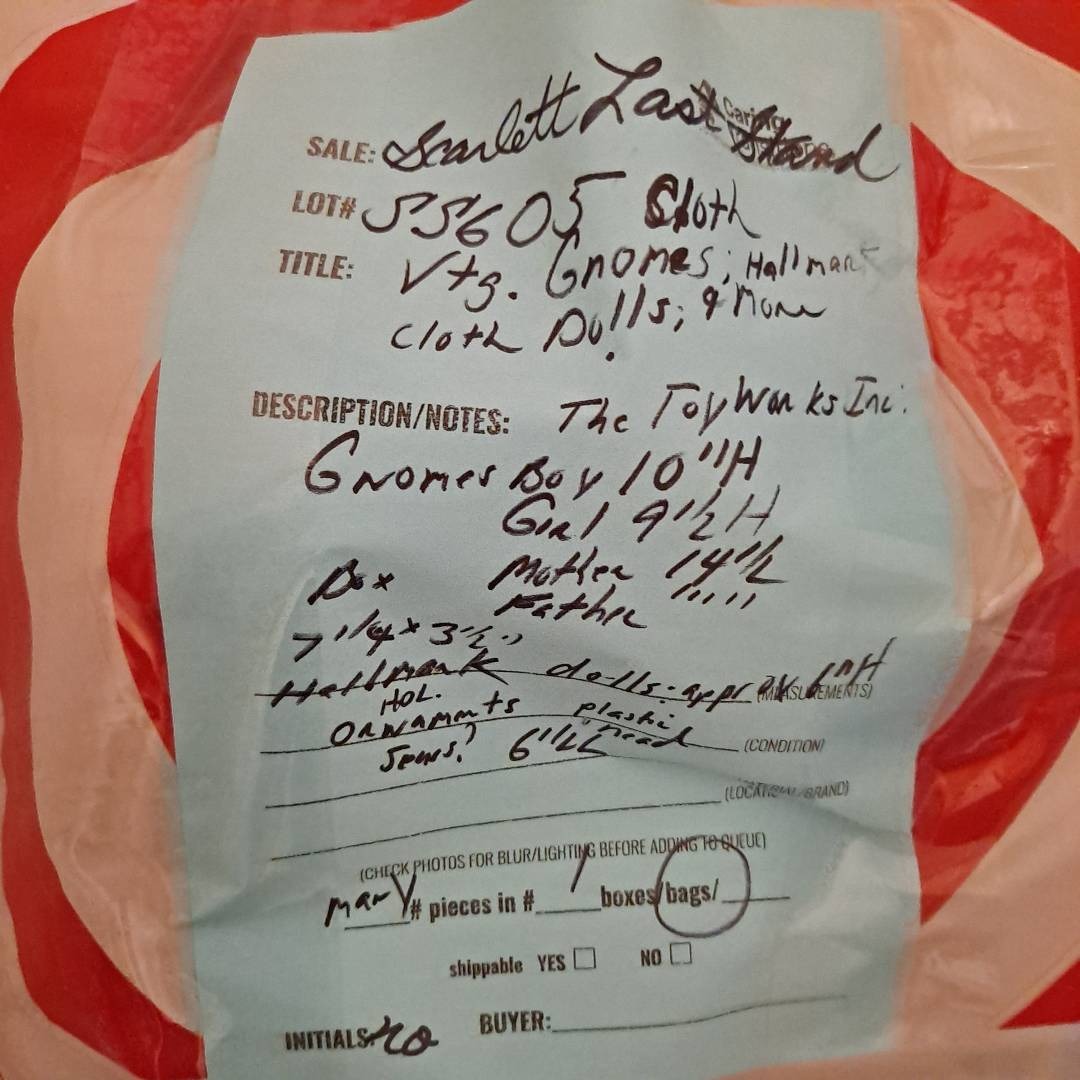 SALE: Scarlett Last Stand
LOT# 55605 Cloth
TITLE: Vtg. Gnomes; Hallmark
Cloth Dolls; & More
DESCRIPTION/NOTES: The Toy Works Inc.
Gnomes Boy 10"H
Girl 9 1/2 H
Box Mother 14 1/2
Father """"
7 1/4 x 3 1/2"
Hallmark dolls: approx 6"H (MEASUREMENTS)
HOL.
Ornaments plastic head (CONDITION)
6"
(LOCATION/BRAND)
(CHECK PHOTOS FOR BLUR/LIGHTING BEFORE ADDING TO QUEUE)
many # pieces in # 1 boxes/bags/
shippable YES NO
INITIALS: BUYER: